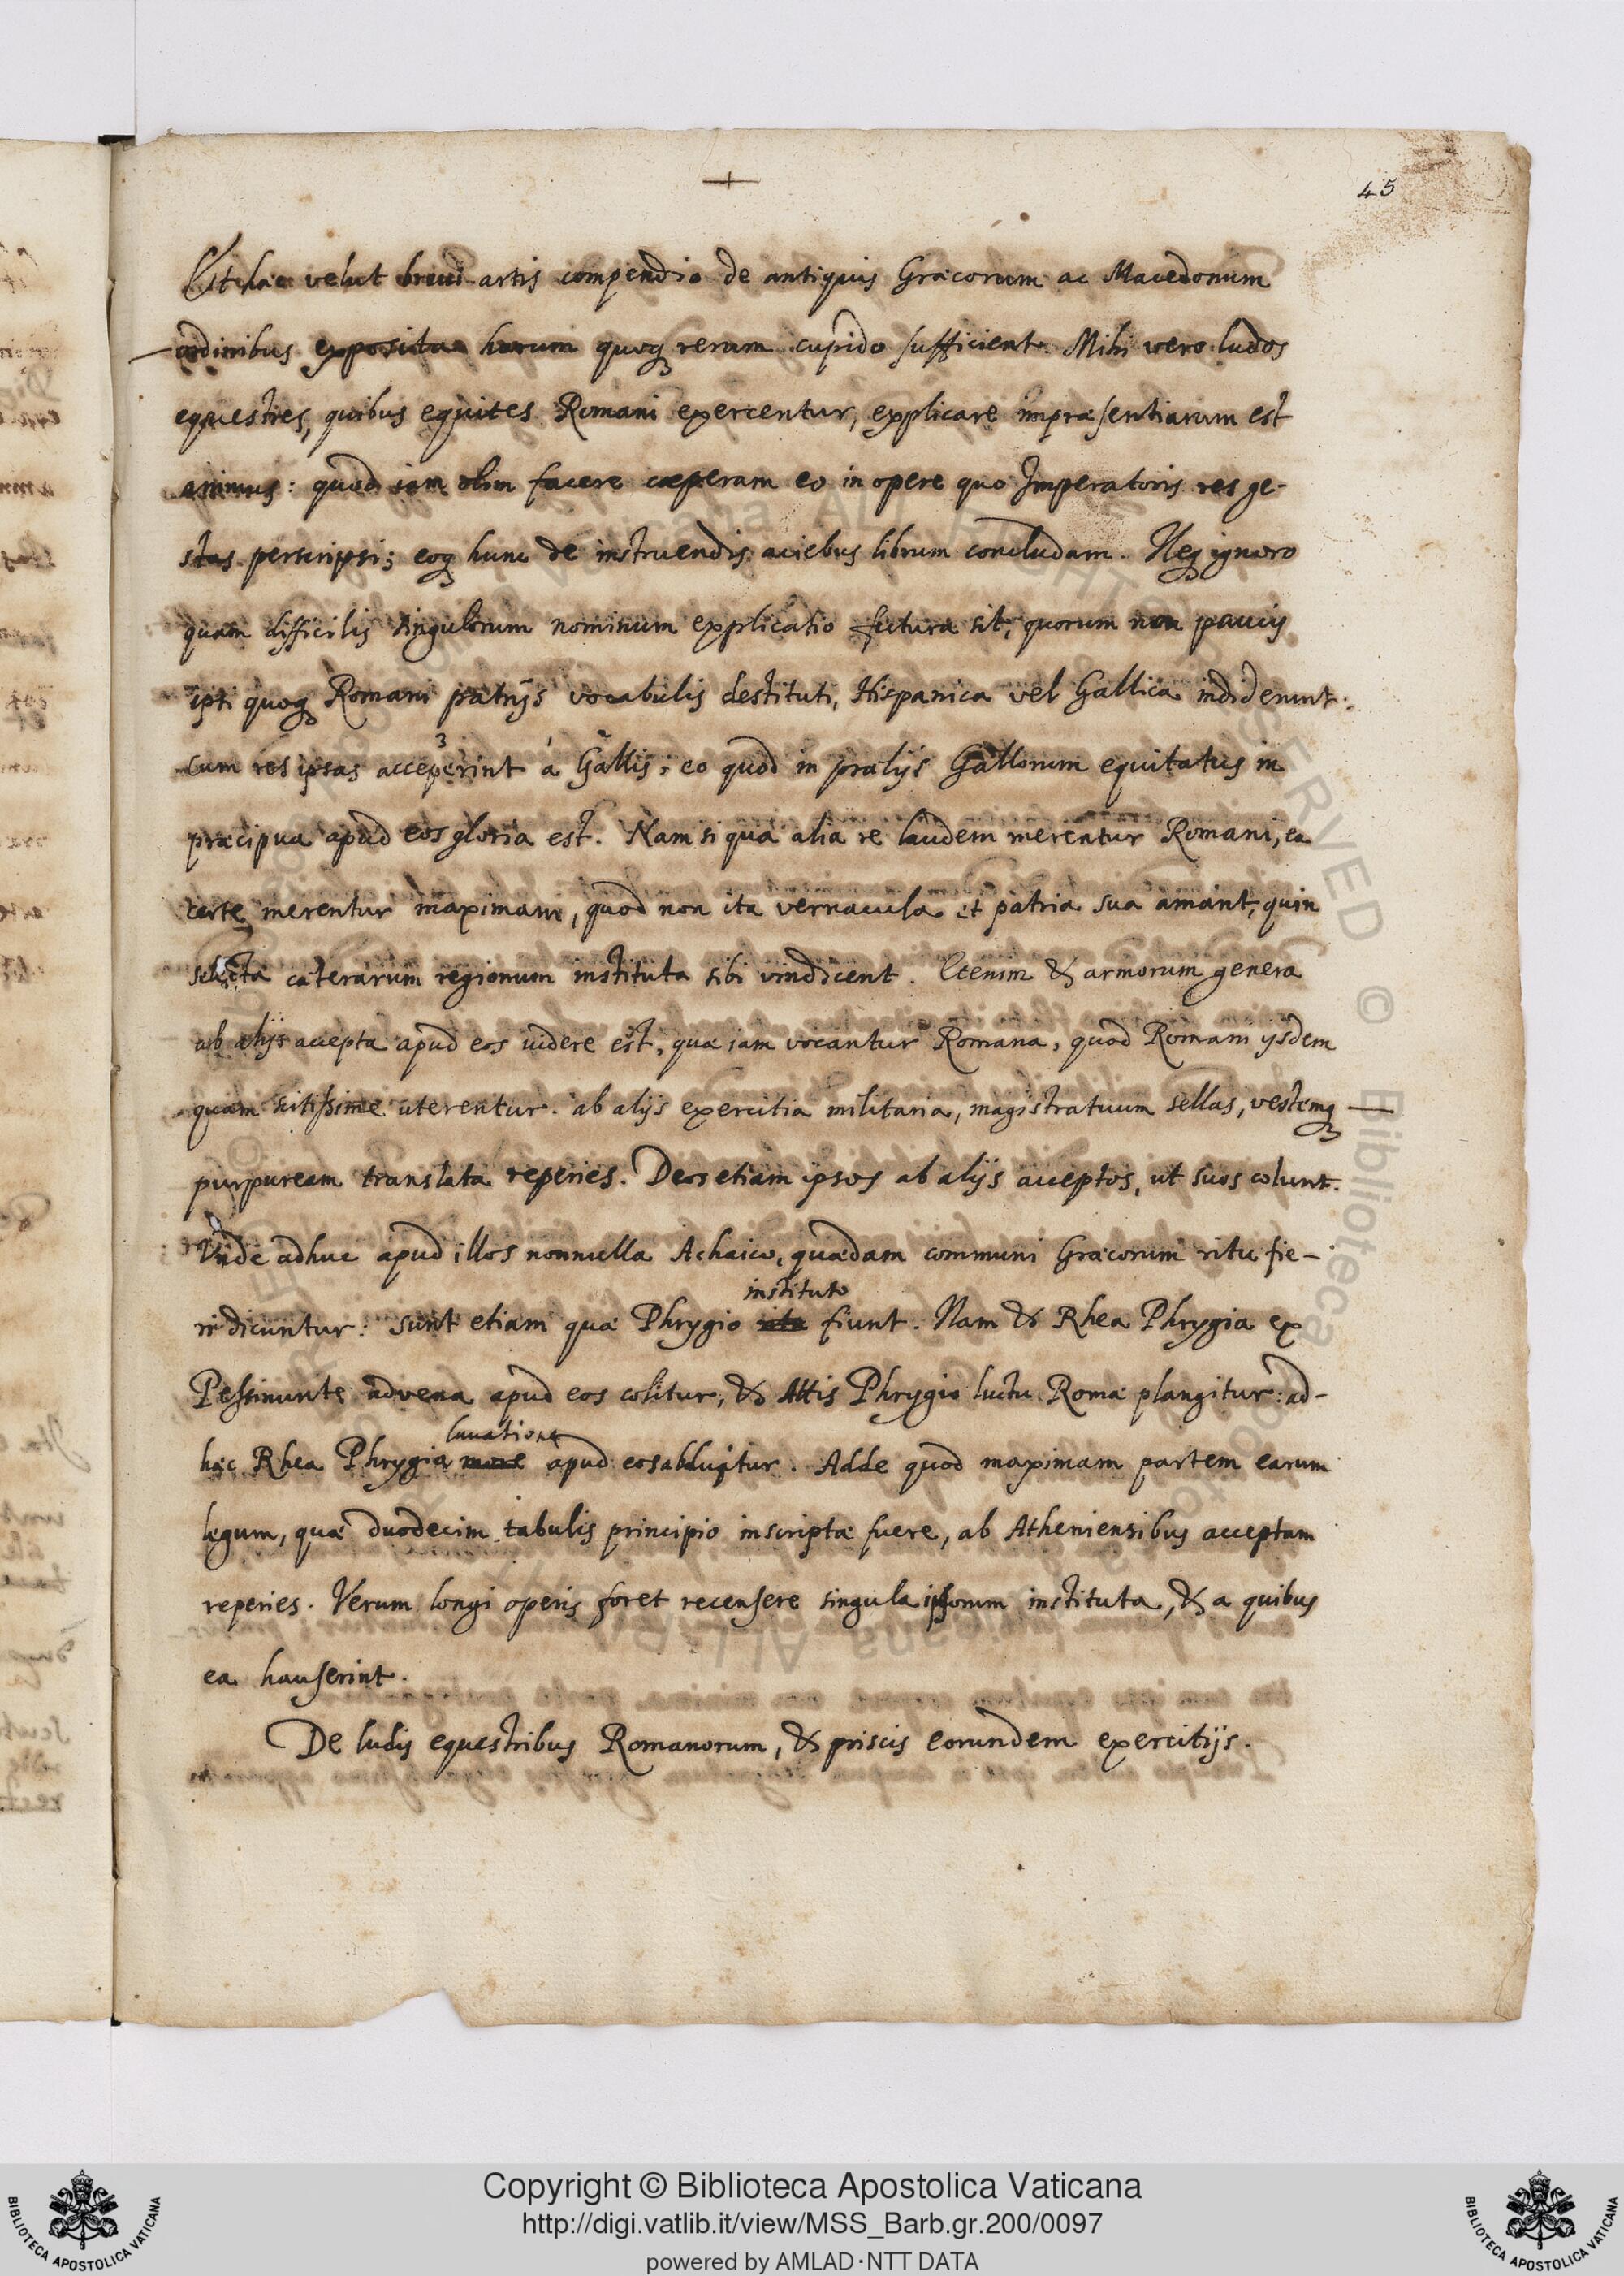 45
Et hæc velut brevi artis compendio de antiquis Græcorum ac Macedonum
ordinibus exposita harum quoq rerum cupido sufficient. Mihi vero ludos
equestres, quibus equites Romani exercentur, explicare impræsentiarum est
animus: quod iam olim facere cœperam eo in opere quo Imperatoris res ge-
stas perscripsi; eoq hunc de instruendis aciebus librum concludam. Neq ignoro
quam difficilis singulorum nominum explicatio futura sit, quorum non paucis
ipsi quoq Romani patrijs vocabulis destituti, Hispanica vel Gallica indiderunt:
cum res ipsas acceperint à Gallis; eo quod in prælijs Gallorum equitatus in
præcipua apud eos gloria est. Nam si qua alia re laudem merentur Romani, ea
certe merentur maximam, quod non ita vernacula et patria sua amant, quin
selecta cæterarum regionum instituta sibi vindicent. Etenim & armorum genera
ab alijs accepta apud eos videre est, quæ iam vocantur Romana, quod Romani ijsdem
quam scitissime uterentur. ab alijs exercitia militaria, magistratuum sellas, vestemq
purpuream translata reperies. Deos etiam ipsos ab alijs acceptos, ut suos colunt.
Unde adhuc apud illos nonnulla Achaico, quædam communi Græcorum ritu fie-
ri dicuntur: sunt etiam quæ Phrygio instituto fiunt. Nam & Rhea Phrygia ex
Pessinunte advena apud eos colitur, & Attis Phrygio luctu Romæ plangitur: ad-
hæc Rhea Phrygia lavatione apud eos abluitur. Adde quod maximam partem earum
legum, quæ duodecim tabulis principio inscriptæ fuere, ab Atheniensibus acceptam
reperies. Verum longi operis foret recensere singula ipsorum instituta, & a quibus
ea hauserint.
De ludis equestribus Romanorum, & priscis eorundem exercitijs.
Copyright © Biblioteca Apostolica Vaticana
http://digi.vatlib.it/view/MSS_Barb.gr.200/0097
powered by AMLAD·NTT DATA
BIBLIOTECA APOSTOLICA VATICANA
BIBLIOTECA APOSTOLICA VATICANA